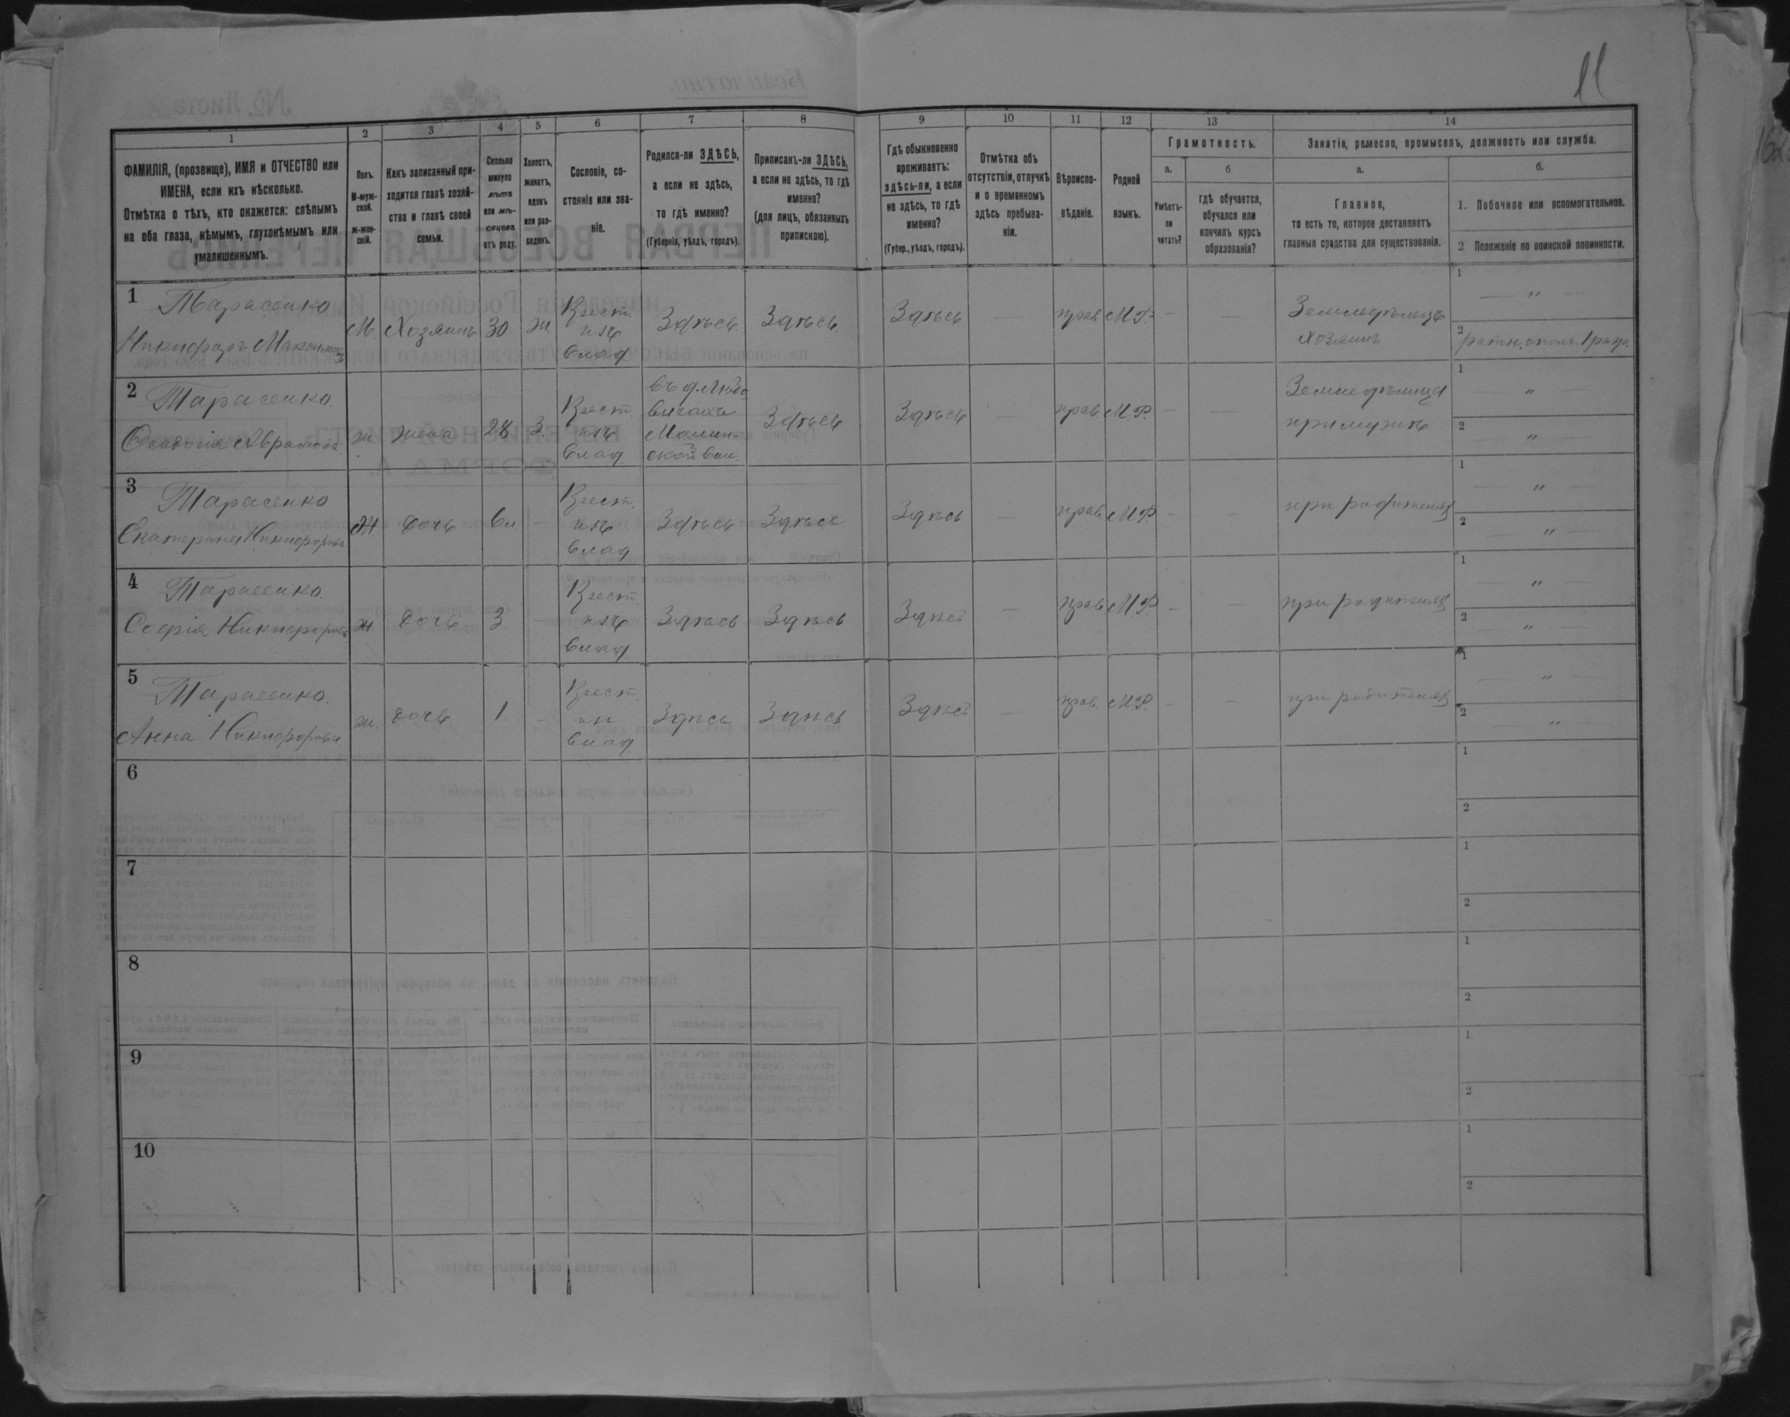 11
1 2 3 4 5 6 7 8 9 10 11 12 13 14
ФАМИЛІЯ, (прозвище), ИМЯ и ОТЧЕСТВО или
ИМЕНА, если ихъ нѣсколько.
Отмѣтка о тѣхъ, кто окажется: слѣпымъ
на оба глаза, нѣмымъ, глухонѣмымъ или
умалишеннымъ.
Полъ.
М-муж-
ской.
Ж-жен-
скій.
Какъ записанный при-
ходится главѣ хозяй-
ства и главѣ своей
семьи.
Сколько
минуло
лѣтъ
или мѣ-
сяцевъ
отъ роду.
Холостъ,
женатъ,
вдовъ
или раз-
веденъ.
Сословіе, со-
стояніе или зва-
ніе.
Родился-ли ЗДѢСЬ,
а если не здѣсь,
то гдѣ именно?
(Губернія, уѣздъ, городъ).
Приписанъ-ли ЗДѢСЬ,
а если не здѣсь, то гдѣ
именно?
(для лицъ, обязанныхъ
припискою).
Гдѣ обыкновенно
проживаетъ:
здѣсь-ли, а если
не здѣсь, то гдѣ
именно?
(Губер., уѣздъ, городъ).
Отмѣтка объ
отсутствіи, отлучкѣ
и о временномъ
здѣсь пребыва-
ніи.
Вѣроиспо-
вѣданіе.
Родной
языкъ.
Грамотность.
а.
Умѣетъ-
ли
читать?
б.
гдѣ обучается,
обучался или
кончилъ курсъ
образованія?
Занятіе, ремесло, промыселъ, должность или служба.
а.
Главное,
то есть то, которое доставляетъ
главныя средства для существованія.
б.
1. Побочное или вспомогательное.
2 Положеніе по воинской повинности.
1 Тарасенко
Никифоръ Максимовъ
М. Хозяинъ 30 ж. Крест. изъ влад Здѣсь Здѣсь Здѣсь — прав М.Р. — — Земледѣлецъ хозяинъ
1 — " —
2 ратн. опол. 1 разр
2 Тарасенко
ж жена 28 З. Крест. изъ влад Здѣсь Здѣсь — прав М.Р. — — Земледѣлица при мужѣ
1 "
2 "
3 Тарасенко
Екатерина Никифорова
ж дочь 6 л — Крест. изъ влад Здѣсь Здѣсь Здѣсь — прав М.Р. — — при родителяхъ
1 "
2 "
4 Тарасенко
Софія Никифорова
ж дочь 3 — Крест. изъ влад Здѣсь Здѣсь Здѣсь — прав М.Р. — — при родителяхъ
1 "
2 "
5 Тарасенко
Анна Никифорова
ж. дочь 1 — Крест. из влад Здѣсь Здѣсь Здѣсь — прав. М.Р. — — при родителяхъ
1 "
2 "
6
1
2
7
1
2
8
1
2
9
1
2
10
1
2